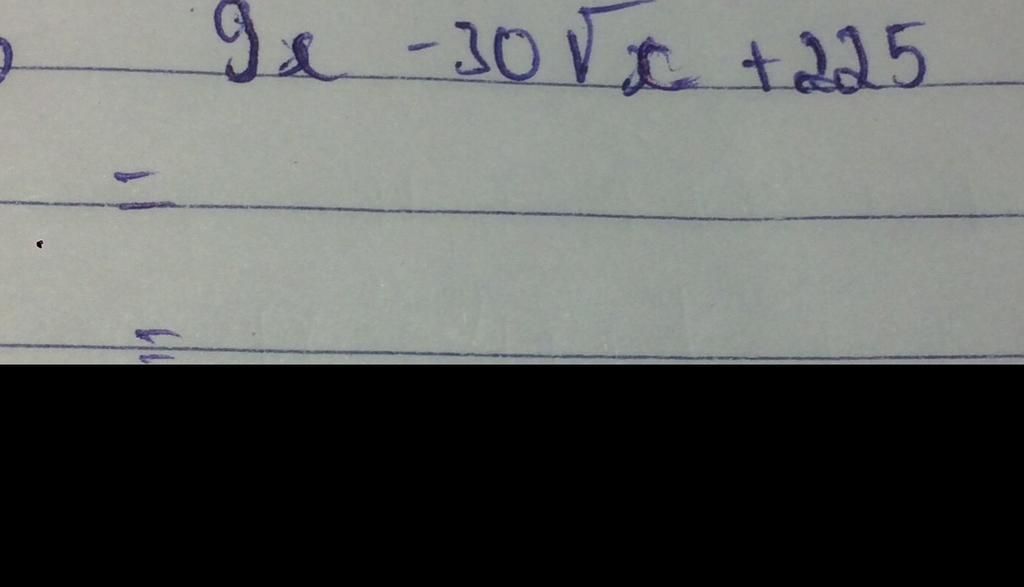 9x - 30√x + 225
=
=